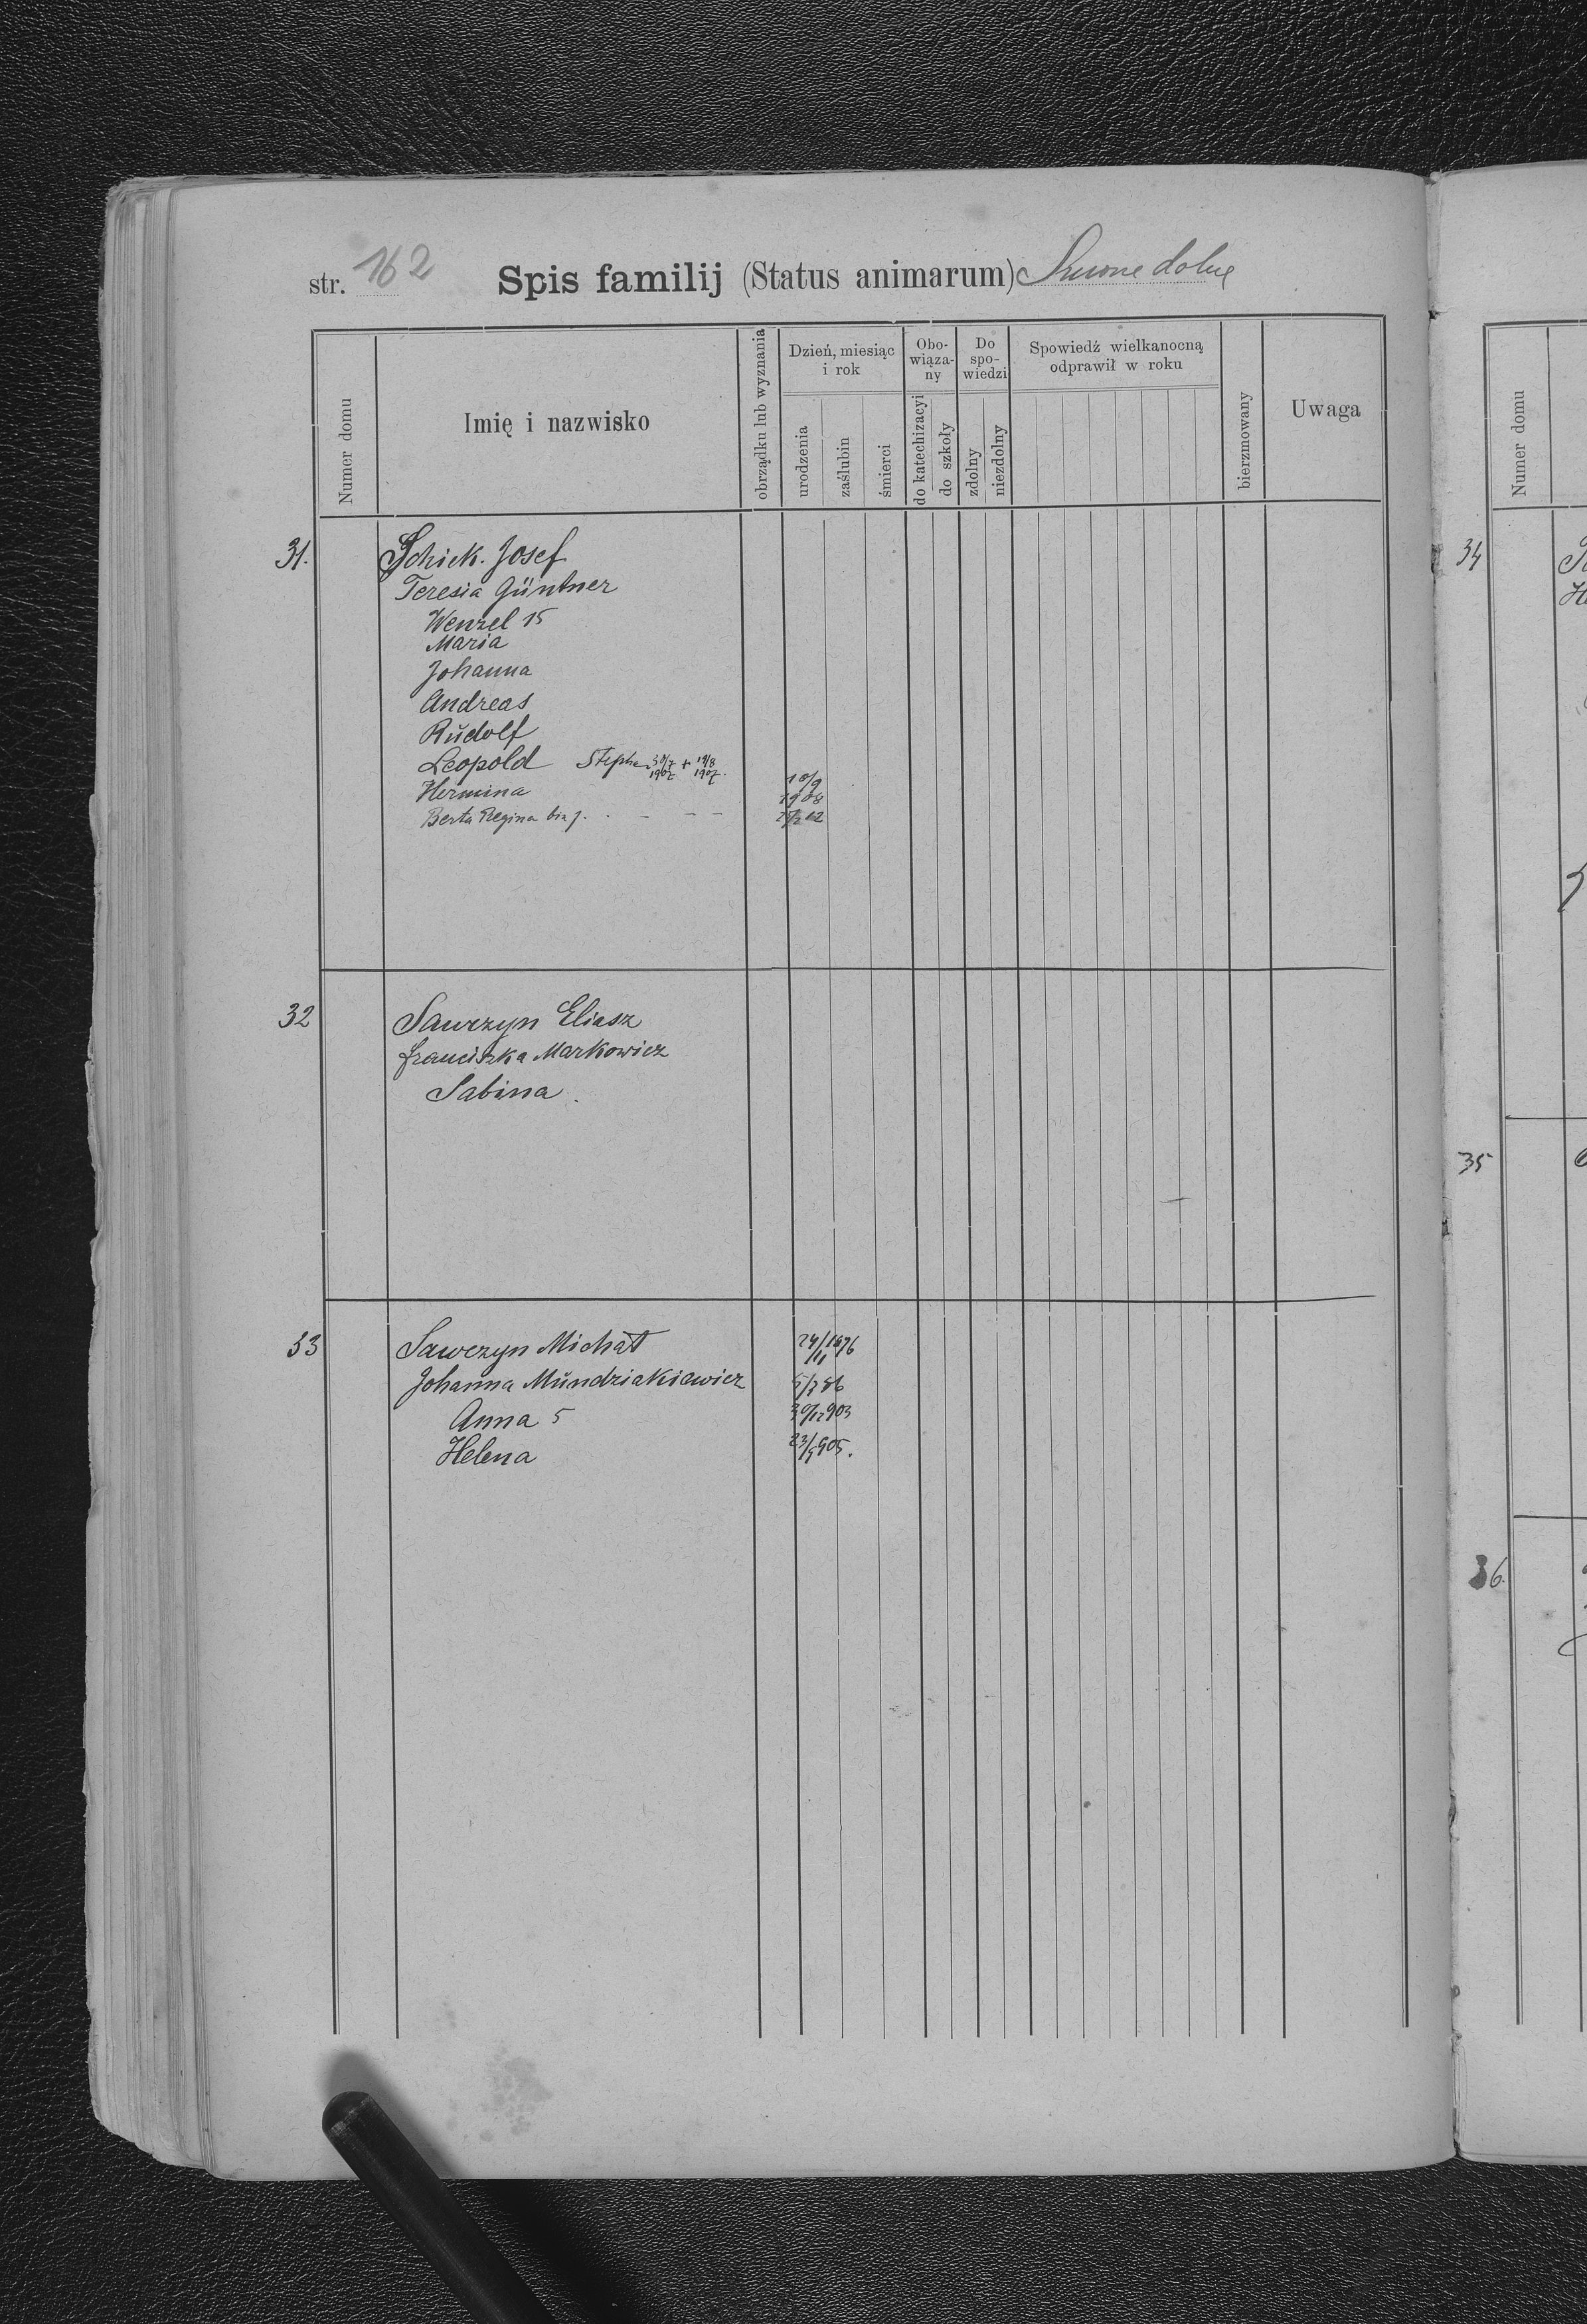 str. 162 Spis familij (Status animarum) dolne
Numer domu
Imię i nazwisko
obrządku lub wyznania
Dzień, miesiąc i rok
urodzenia
zaślubin
śmierci
Obo-
wiąza-
ny
do katechizacyi
do szkoły
Do
spo-
wiedzi
zdolny
niezdolny
Spowiedź wielkanocną
odprawił w roku
bierzmowany
Uwaga
31. Schick. Josef
Teresia Güntner
Wenzel 15
Maria
Johanna
Andreas
Rudolf
Leopold Stephan 30/7 1907 + 19/8 1907.
Hermina 10/9 1908
Berta Regina 
32 Sawczyn Eliasz
Franciszka Markowicz
Sabina.
33 Sawczyn Michał 24/11 1876
Johanna Mundziakiewicz 5/7 86
Anna 5 30/12 903
Helena 23/5 905.
Numer domu
34
35
36.